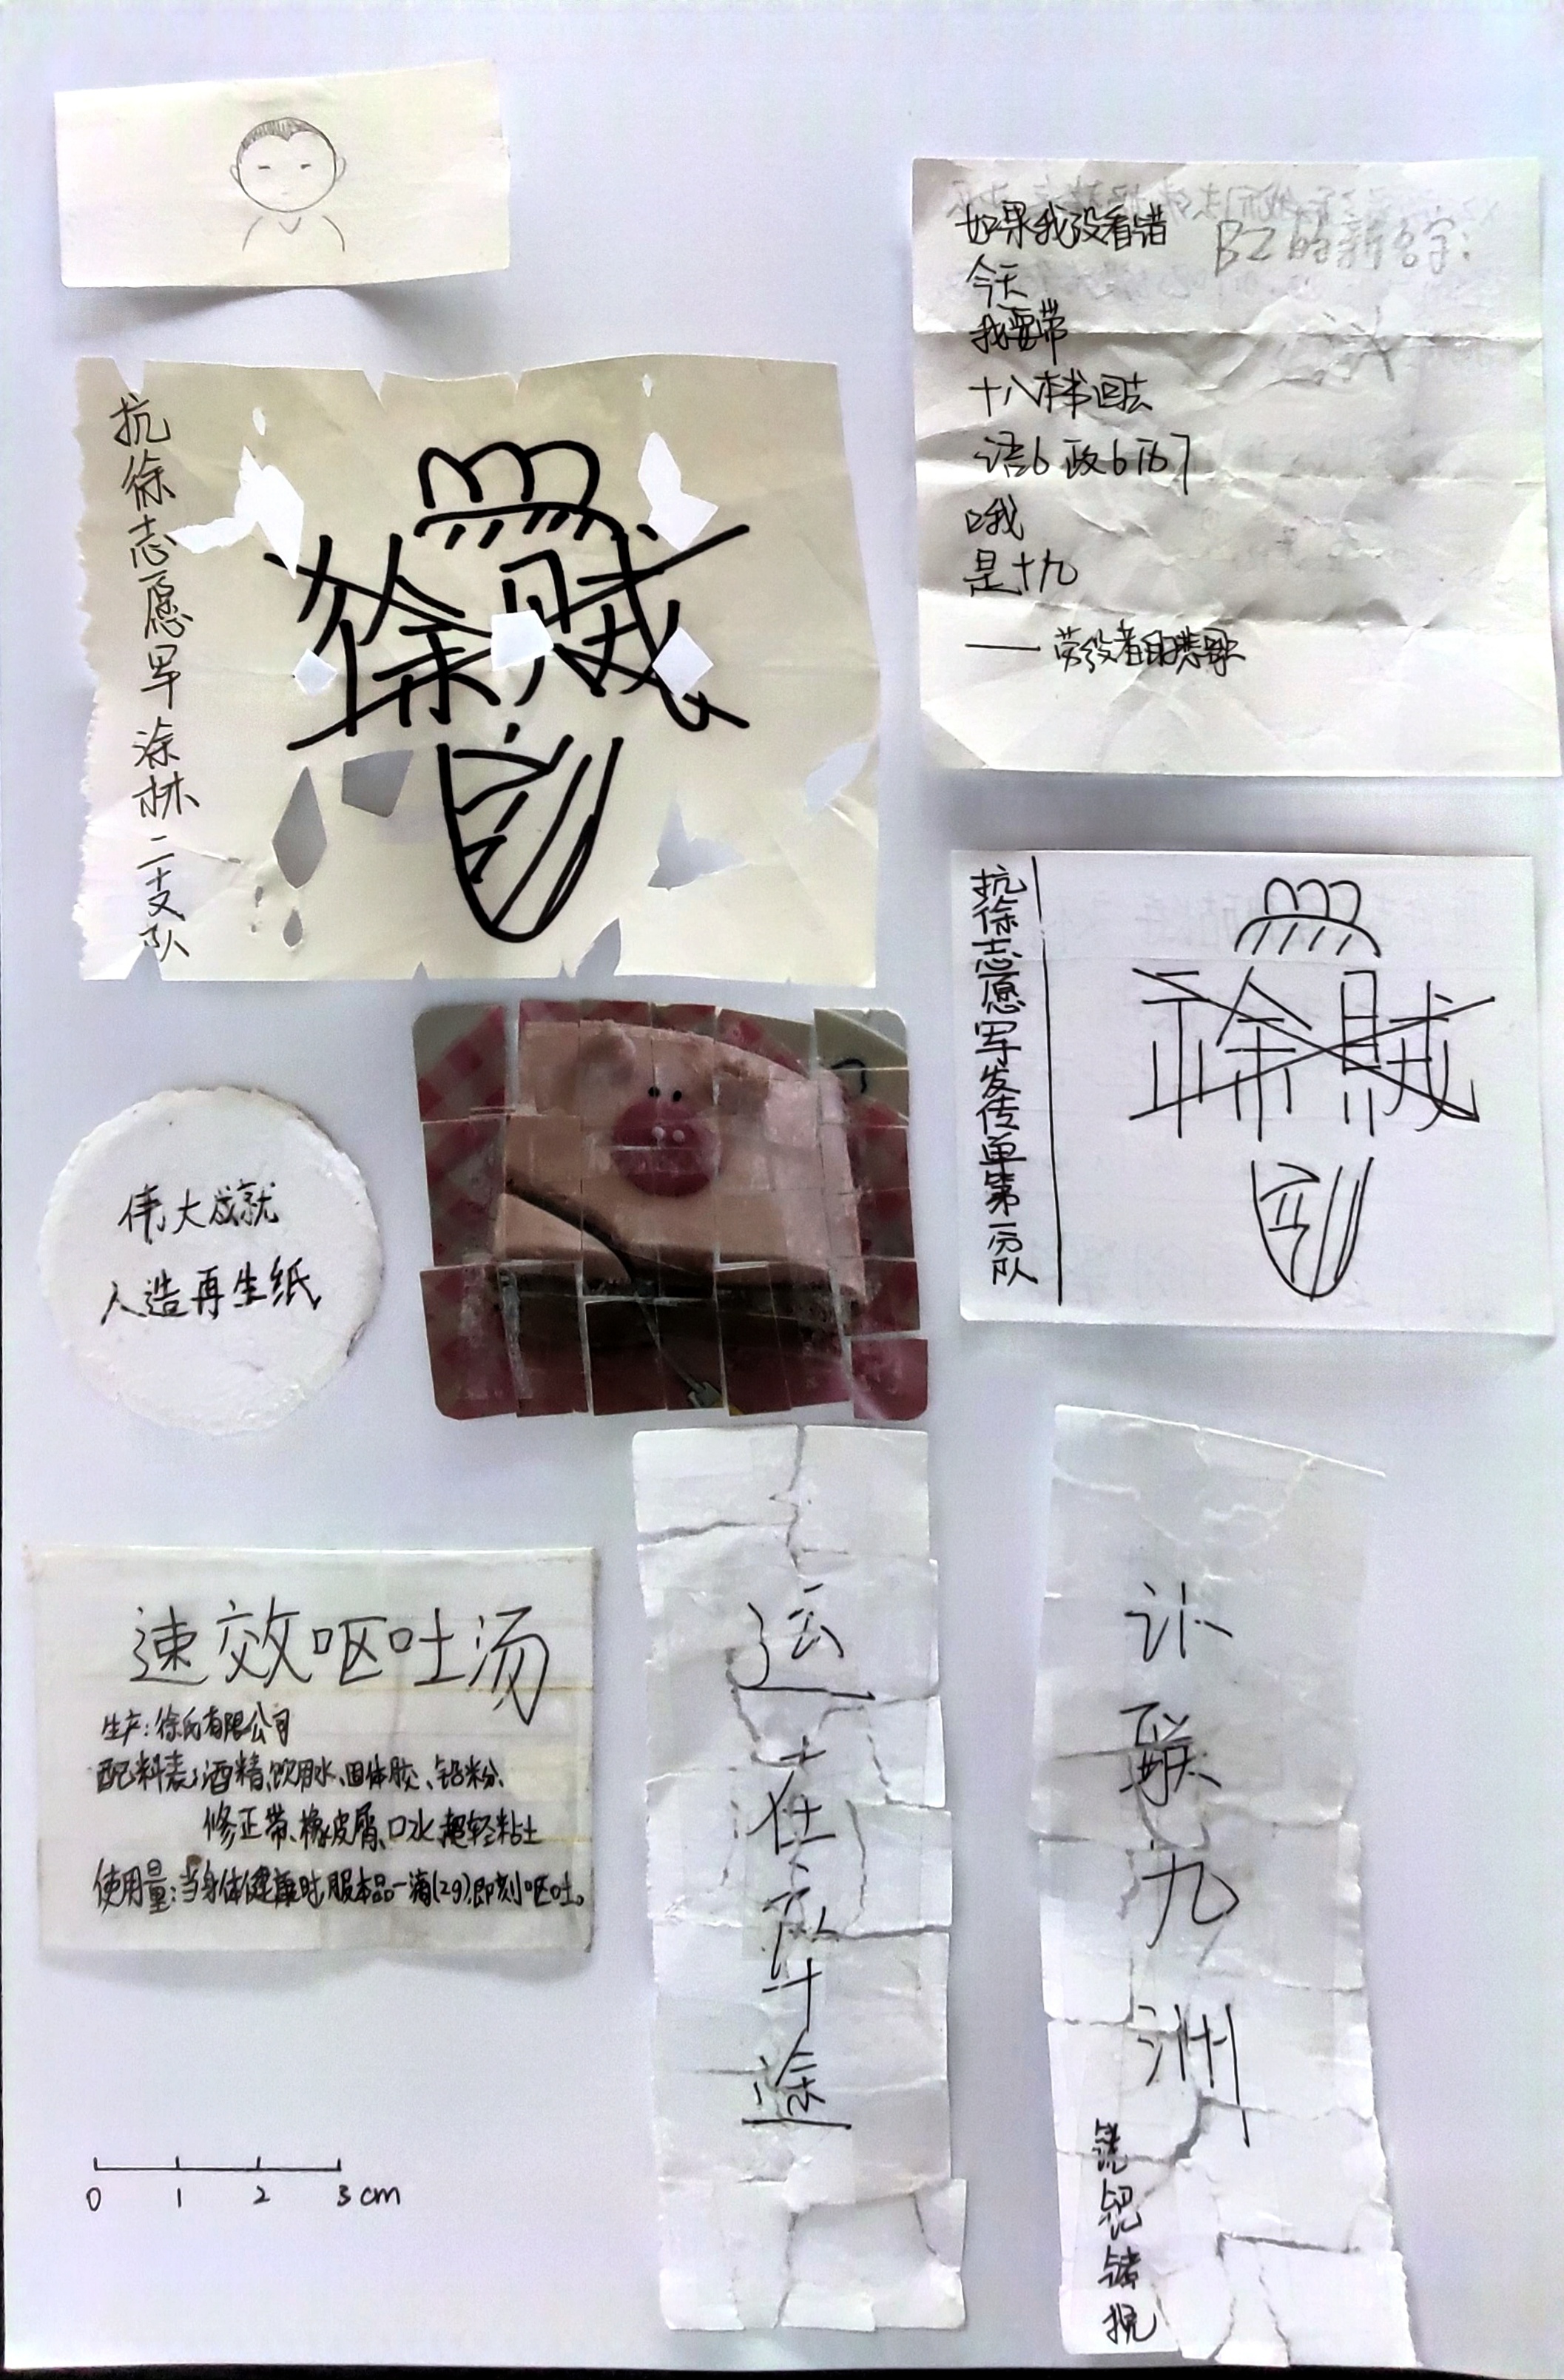 如果我没看错
今天
我要带
十八本书回去
语6 政6 历7
哦
是十九
——劳役者的悲歌
BZ的新名字:
抗徐志愿军涂林二支队
徐贼
必列
抗徐志愿军发传单第一分队
徐贼
伟大成就
人造再生纸
速效呕吐汤
生产:徐氏有限公司
配料表:酒精、饮用水、固体胶、铅粉、
修正带、橡皮屑、口水、超轻粘土
使用量:当身体健康时服本品一滴(2g),即刻呕吐。
运在
途
联九洲
0 1 2 3 cm